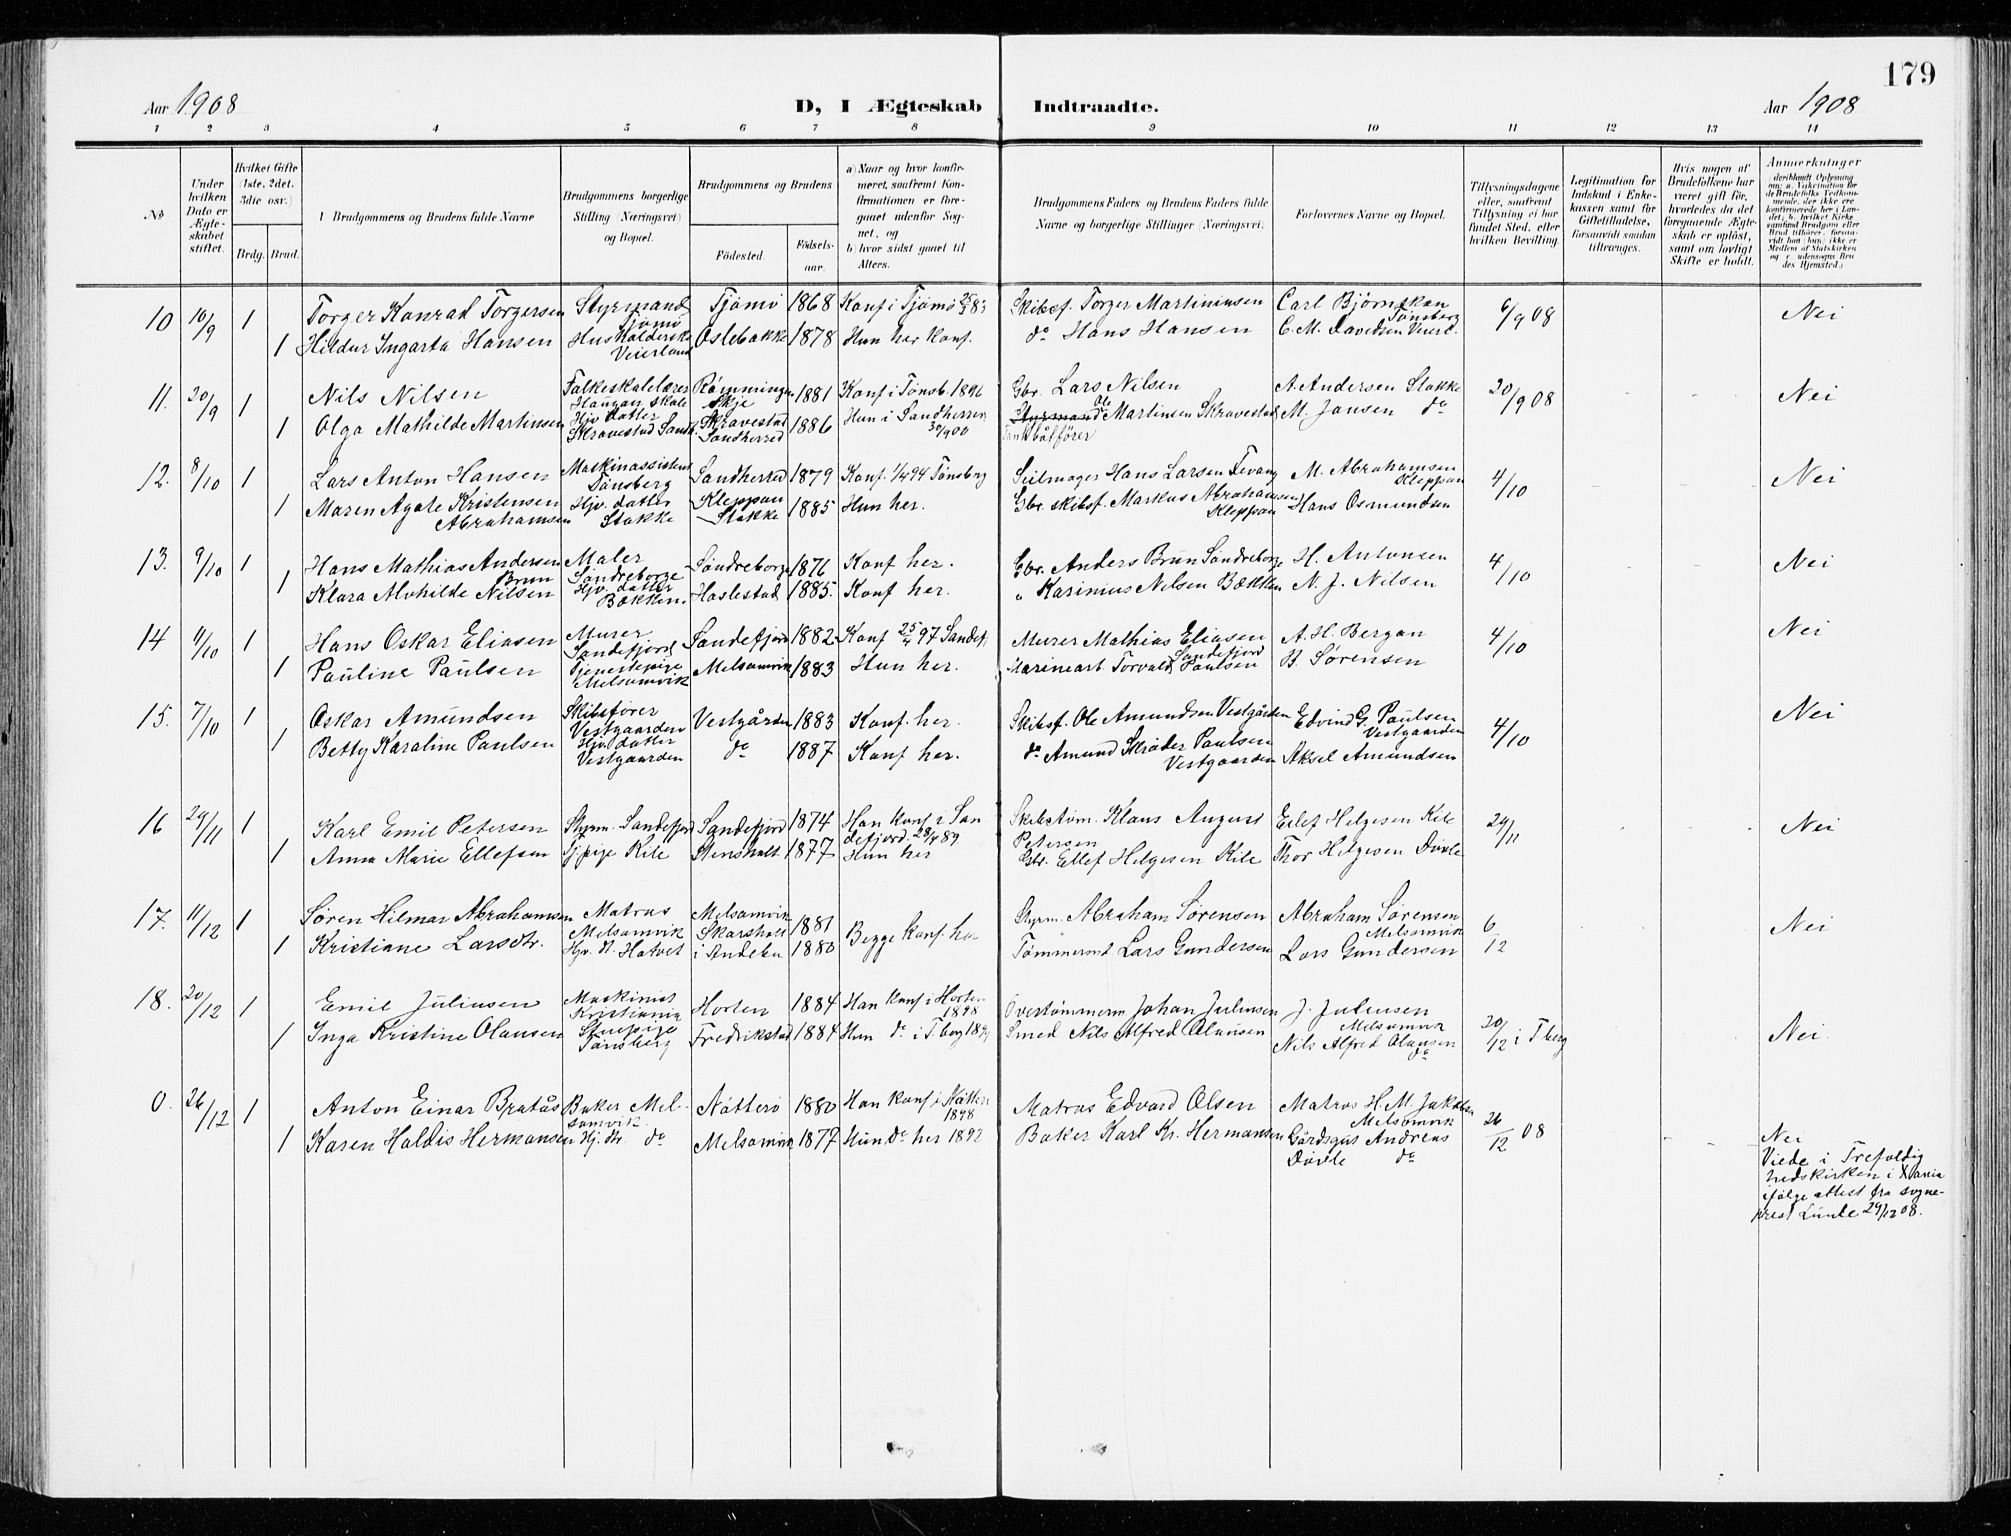 179
Aar 1908 D, I Ægteskab Indtraadte. Aar 1908
1 2 3 4 5 6 7 8 9 10 11 12 13 14
No
Under hvilken Dato er Ægteskabet stiftet.
Hvilket Gifte (1ste, 2det. 3die osv.)
Brdg. Brud.
1 Brudgommens og Brudens fulde Navne
Brudgommens borgerlige Stilling (Næringsvei) og Bopæl.
Brudgommens og Brudens
Fødested. Fødselsaar.
a) Naar og hvor konfirmeret, saafremt Konfirmationen er foregaaet udenfor Sognet, og
b) hvor sidst gaaet til Alters.
Brudgommens Faders og Brudens Faders fulde Navne og borgerlige Stillinger (Næringsvei)
Forlovernes Navne og Bopæl.
Tillysningsdagene eller, saafremt Tillysning ei har fundet Sted, efter hvilken Bevilling.
Legitimation for Indskud i Enkekassen samt for Giftetilladelse, forsaavidt saadan tiltrænges.
Hvis nogen af Brudefolkene har været gift før, hvorledes da det foregaaende Ægteskab er opløst, samt om lovligt Skifte er holdt.
Anmerkninger (deriblandt Oplysning om: a. Vakcination for de Brudefolks Vedkommende, der ikke ere konfirmerede her i Landet; b. hvilket Kirkesamfund Brudgom eller Brud tilhører, forsaavidt han (hun) ikke er Medlem af Statskirken og c. udensogns Brudes Hjemsted.)
10 10/9 1 Torger Konrad Torgersen Styrmand Tjømø Tjømø 1868 Konf i Tjømø 25/3 83 Skibsf. Torger Martiniusen Carl Bjørnskau Tønsberg 6/9 08 Nei
1 Hildur Ingarta Hansen Husholderske Veierland Oslebakke 1878 Hun her konf. do Hans Hansen C. M. Davidsen Veierl.
11. 20/9 1 Nils Nilsen Folkeskolelærer Haugan skole Rømmingen Skje 1881 Konf i Tønsb. 1896 Gbr. Lars Nilsen A. Andersen Stokke 20/9 08 Nei
1 Olga Mathilde Martinsen Hjv datter Skravestad Sandh. Skravestad Sandherred 1886 Hun i Sandherred 30/9 00 Styrmand Ole Martinsen Skravestad M. Jansen do
Tankbåtfører
12. 8/10 1 Lars Anton Hansen Maskinassistent Tønsberg Sandherred 1879 Konf. 1/4 94 Tønsberg Seilmager Hans Larsen Tevang M. Abrahamsen Kleppan 4/10 Nei
1 Maren Agate Kristensen Abrahamsen Hjv. datter Stokke Kleppan Stokke 1885 Hun her. Gbr. skibsf. Markus Abrahamsen Kleppan Hans Osmundsen
13. 9/10 1 Hans Mathias Andersen Brun Maler Søndreborge Søndreborge 1876 Konf her. Gbr. Anders Brun Søndreborge H. Antonsen 4/10 Nei
1 Klara Alvhilde Nilsen Hjv. datter Bækken. Haslestad 1885. Konf her. " Karinius Nilsen Bækken N. J. Nilsen
14 11/10 1 Hans Oskar Eliasen Murer Sandefjord Sandefjord 1882 Konf 25/4 97 Sandefj. Murer Mathias Eliasen Sandefjord A. H. Bergan 4/10 Nei
1 Pauline Paulsen Tjenestepige Melsomvik Melsomvik 1883 Hun her. Marineart Torvald Paulsen B. Sørensen
15. 7/10 1 Oskar Amundsen Skibsfører Vestgaarden Vestgården 1883 Konf. her. Skibsf. Ole Amundsen Vestgården Edvind G. Paulsen Vestgaarden 4/10 Nei
1 Betty Karaline Paulsen Hjv datter Vestgaarden do 1887 Konf her. do Amund Skrøder Paulsen Vestgaarden Aksel Amundsen
16 29/11 1 Karl Emil Petersen Styrm. Sandefjord Sandefjord 1874 Han konf i Sandefjord 28/4 89 Skibstøm. Klaus August Petersen Ellef Helgesen Kile 29/11 Nei
1 Anna Marie Ellefsen Tjpige Kile Stensholt 1877 Hun her Gbr. Ellef Helgesen Kile Thor Helgesen Døvle
17. 11/12 1 Søren Hilmar Abrahamsen Matros Melsomvik Melsomvik 1881 Begge konf. her Styrm. Abraham Sørensen Abraham Sørensen Melsomvik 6/12 Nei
1 Kristiane Larsdtr. Hjv. d. Hotvet Skarsholt i Andebu 1880 Tømmermd Lars Gundersen Lars Gundersen
18. 20/12 1 Emil Juliusen Maskinist Kristiania Horten 1884 Han konf i Horten 1898 Overtømmerm Johan Juliusen J. Juliusen Melsomvik 20/12 i Tberg Nei.
1 Inga Kristine Olausen Stuepige Tønsberg Fredrikstad 1884 Hun do i Tberg Smed Nils Alfred Olausen Nils Alfred Olausen do
0. 26/12 1 Anton Einar Bratås Baker Melsomvik Nøtterø 1880 Han konf i Nøtterø 1898 Matros Edvard Olsen Matros H. M. Jakobsen Melsomvik 26/12 08 Nei
1 Karen Haldis Hermansen Hj. dr. do Melsomvik 1877 Hun do her 1892 Baker Karl Kr. Hermansen Gårdsgut Andreas Døvle do
Viede i Trefoldighedskirken i Xania ifølge attest fra sogneprest Lunde 29/12 08.